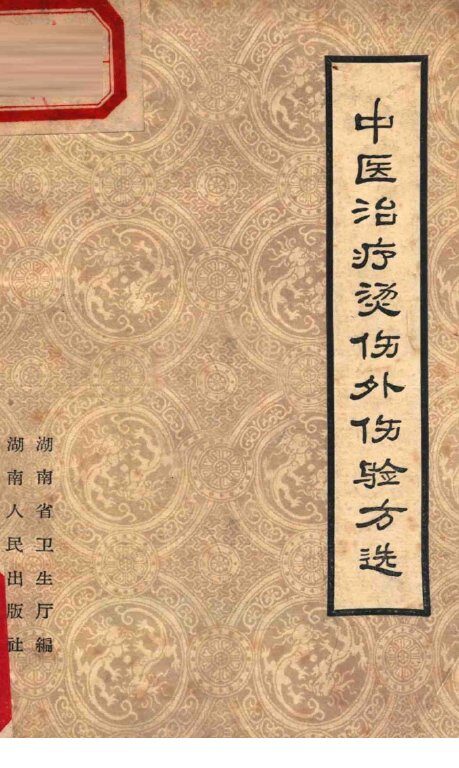 中医治疗烫伤外伤验方选
湖南省卫生厅编
湖南人民出版社